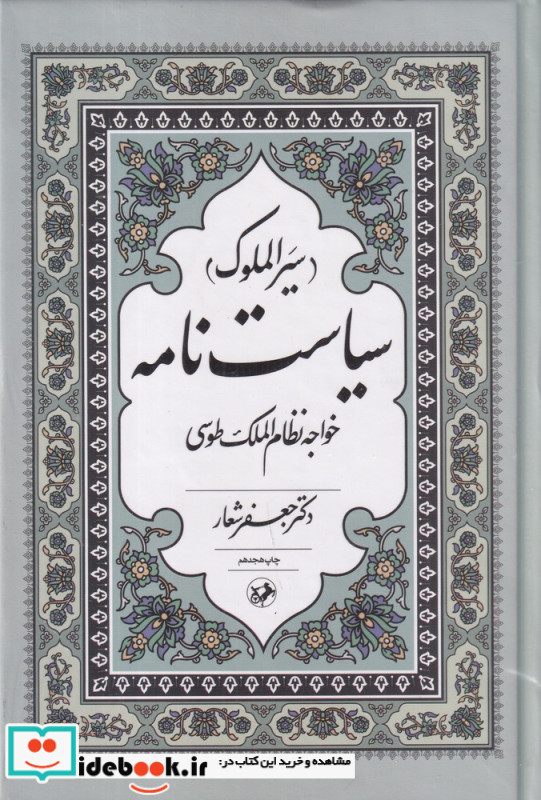 (سیرالملوک)
سیاست نامه
خواجه نظام الملک طوسی
دکتر جعفر شعار
چاپ هجدهم
idebook.ir
مشاهده و خرید این کتاب در: